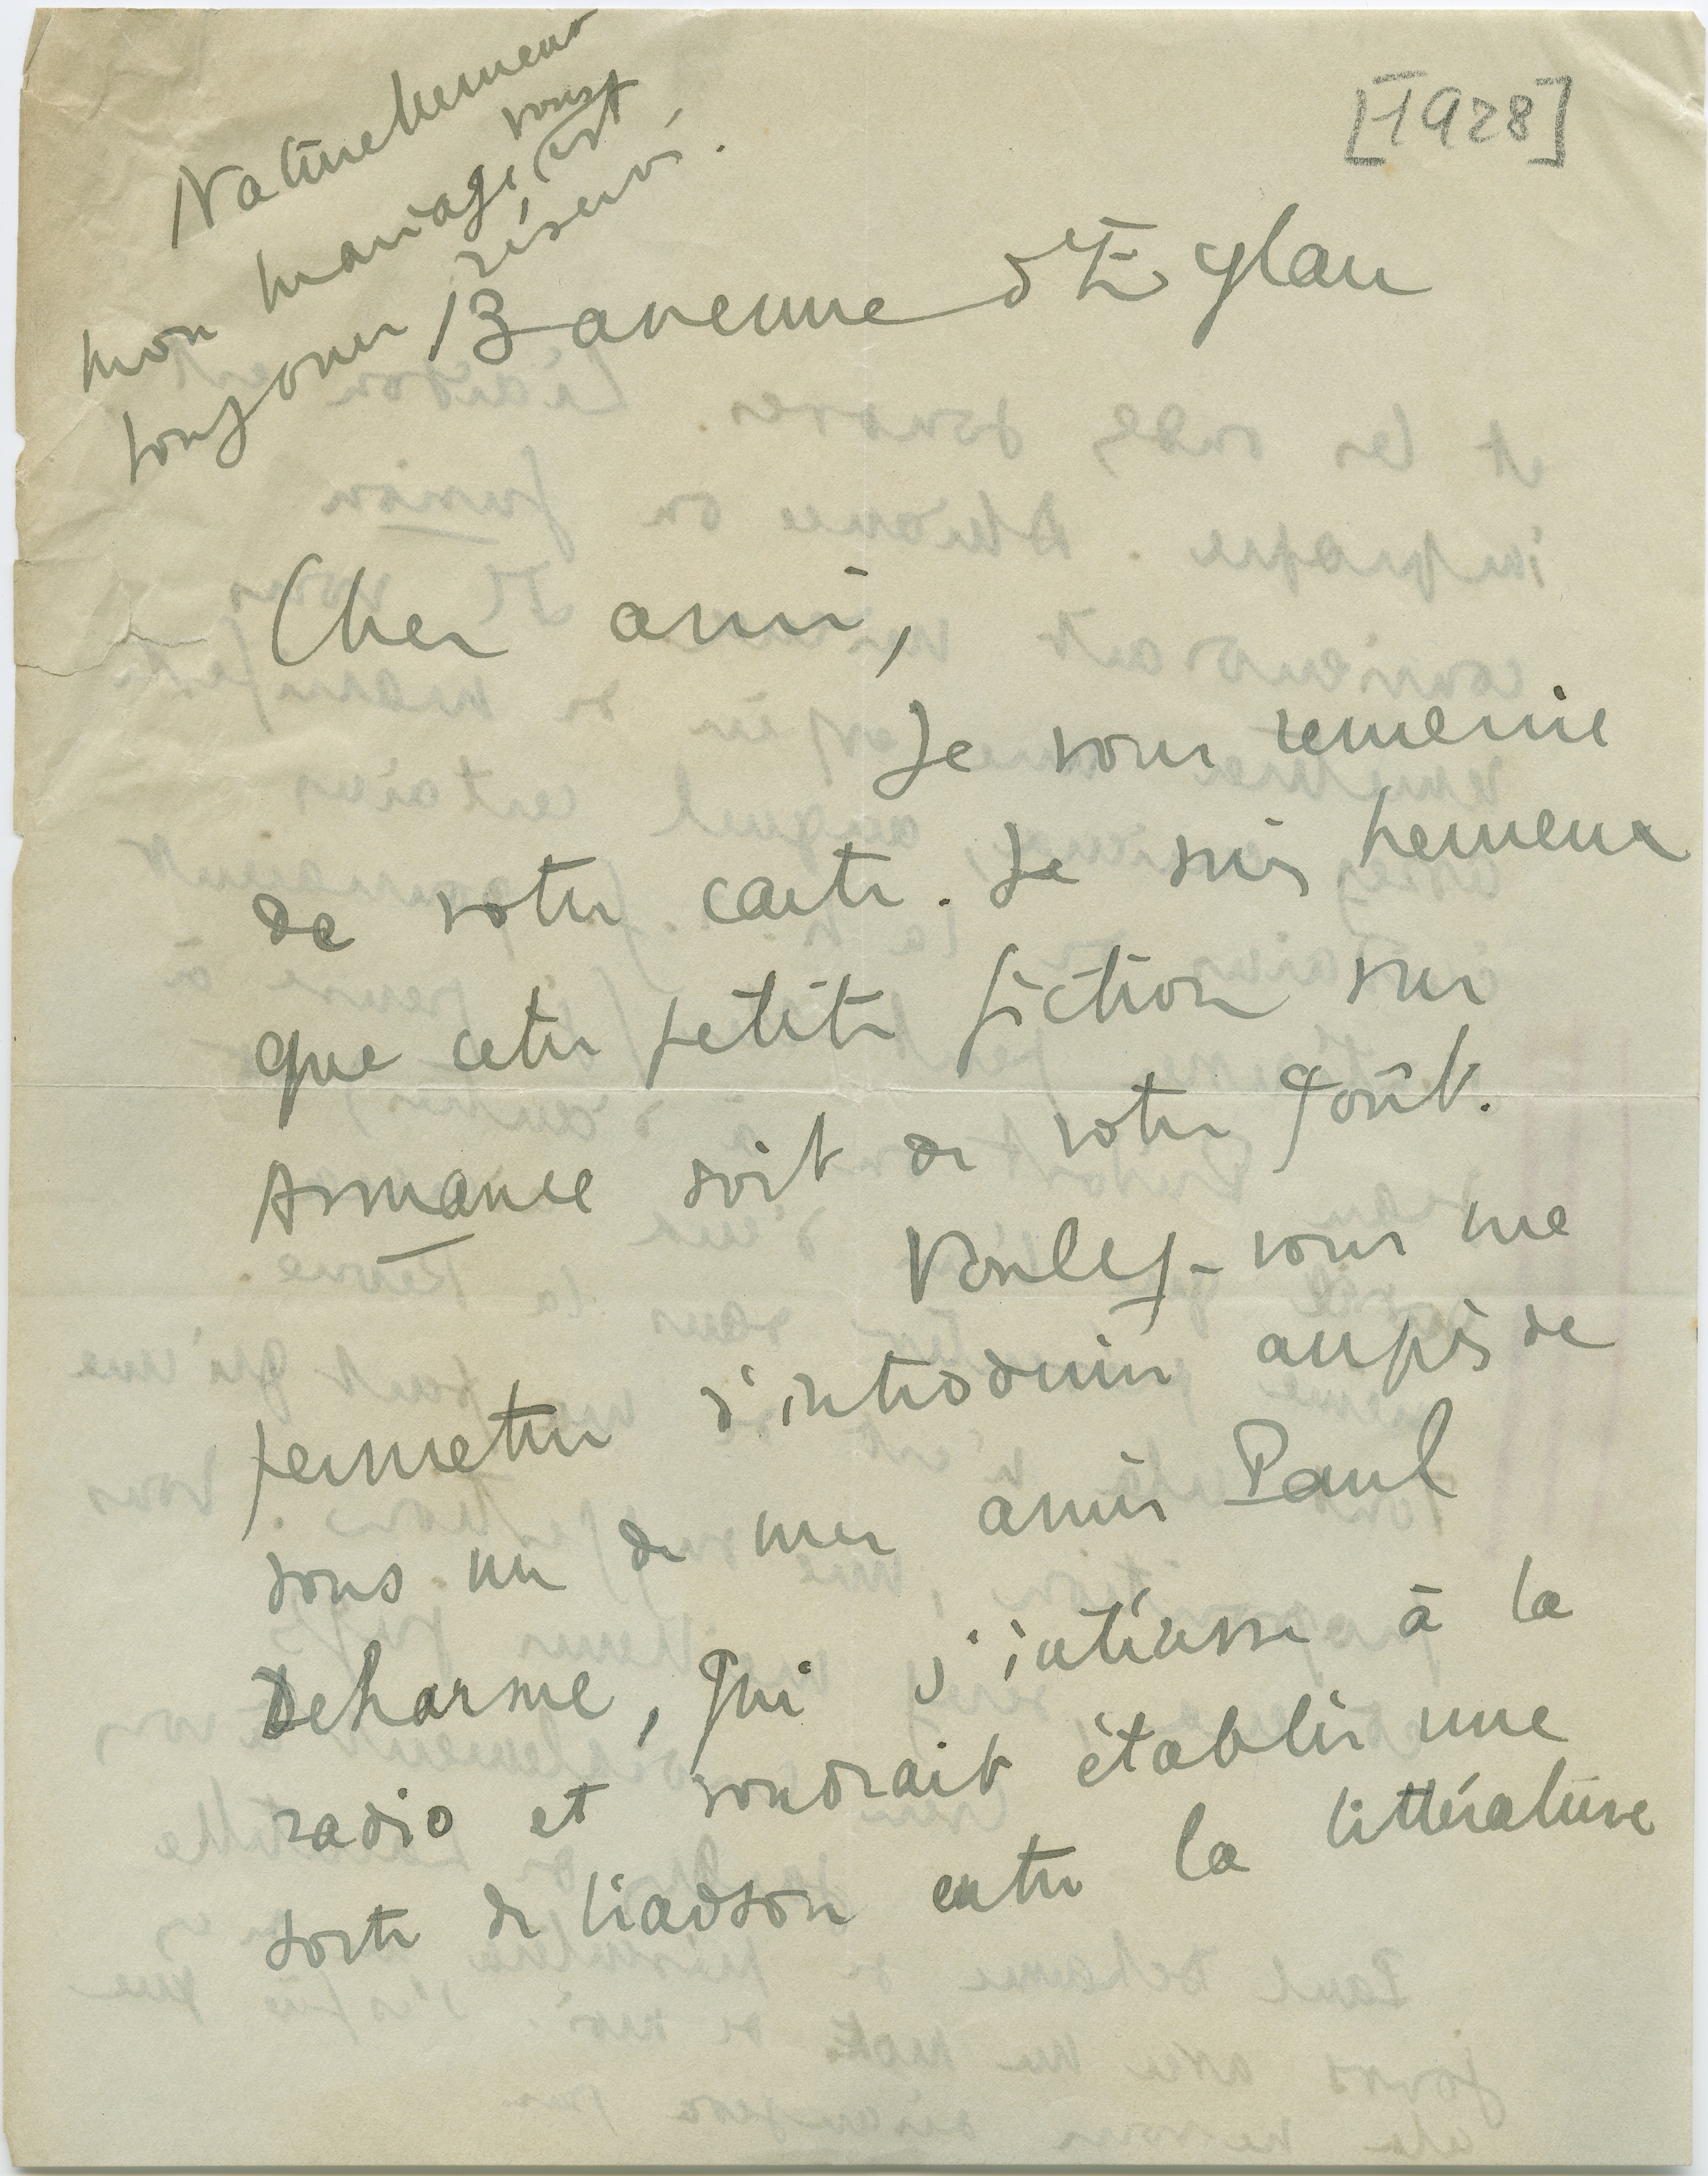 Naturellement
mon mariage vous est
toujours réservé.
[1928]
13 avenue d'Eylau
Cher ami,
Je vous remercie
de votre carte. Je suis heureux
que cette petite fiction sur
Armance soit de votre goût.
Voulez-vous me
permettre d'introduire auprès de
vous un de mes amis Paul
Deharme, qui s'intéresse à la
radio et voudrait établir une
sorte de liaison entre la littérature